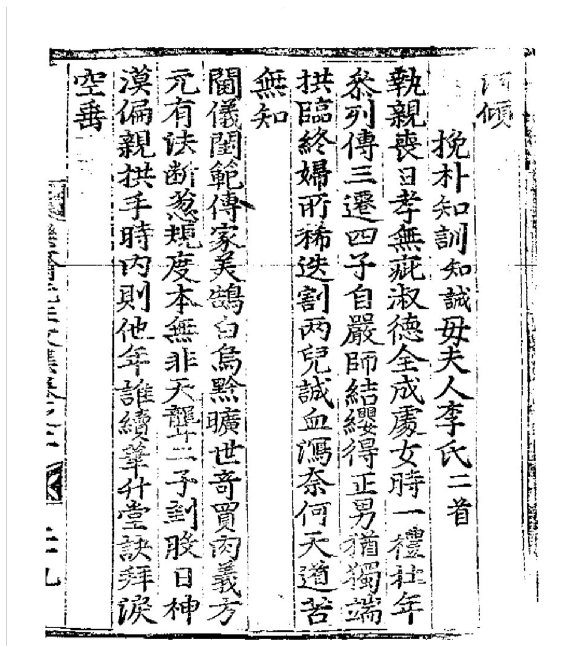 河傾
挽朴知訓知誠母夫人李氏二首
執親喪日孝無疵淑德全成處女時一禮社年
叅列傳三遷四子自嚴師結纓得正男猶獨端
拱臨終婦所稀迭割兩兒誠血瀉奈何天道苦
無知
閫儀閨範傳家美鵠白烏黔曠世奇買肉義方
元有法断葱規度本無非天聾二子刲股日神
漠偏親拱手時內則他年誰續筆升堂訣拜淚
空垂
二十九